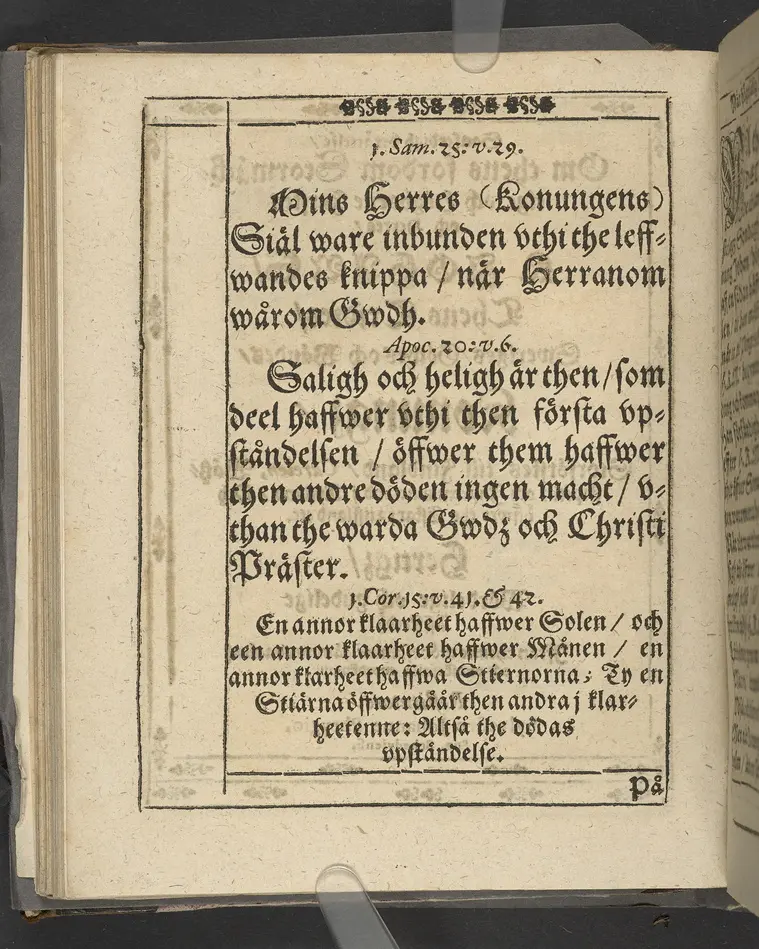 1. Sam. 25: v. 29.
Mins Herres (Konungens)
Siäl ware inbunden vthi the leff-
wandes knippa / när Herranom
wårom Gwdh.
Apoc. 20: v. 6.
Saligh och heligh är then / som
deel haffwer vthi then första vp-
ståndelsen / öffwer them haffwer
then andre döden ingen macht / v-
than the warda Gwdz och Christi
Präster.
1. Cor. 15: v. 41. & 42.
En annor klaarheet haffwer Solen / och
een annor klaarheet haffwer Månen / en
annor klarheet haffwa Stiernorna; Ty en
Stiärna öffwergåår then andra j klar-
heetenne: Altså the dödas
vpståndelse.
På